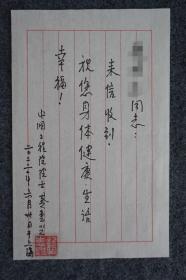 同志：
来信收到！
祝您身体健康、生活
幸福！
中国工程院院士
二〇二〇年六月廿日于上海